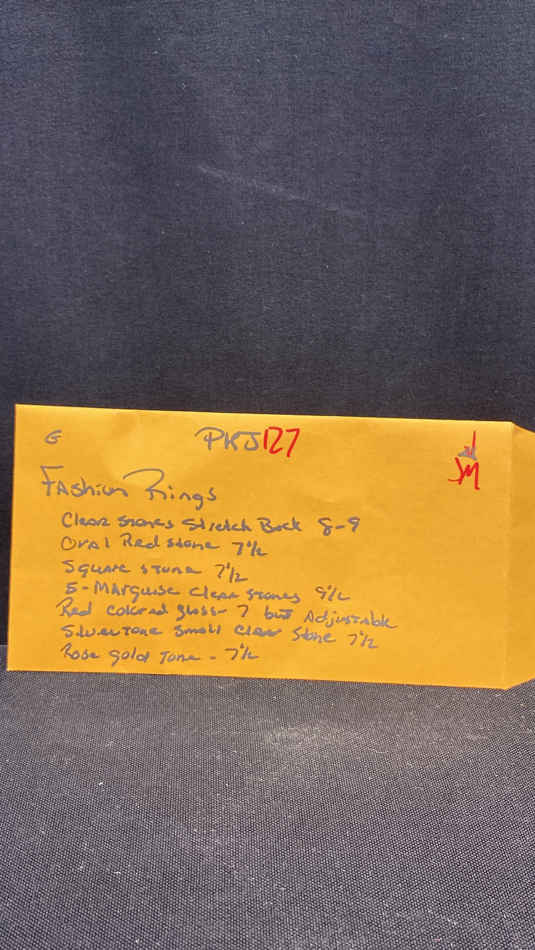 G PKJ127
JM
Fashion Rings
Clear stones stretch Back 8-9
Oval Red stone 7 1/2
Square stone 7 1/2
5-Marquise clear stones 9 1/2
Red colored glass- 7 but Adjustable
Silvertone small clear stone 7 1/2
Rose gold Tone - 7 1/2